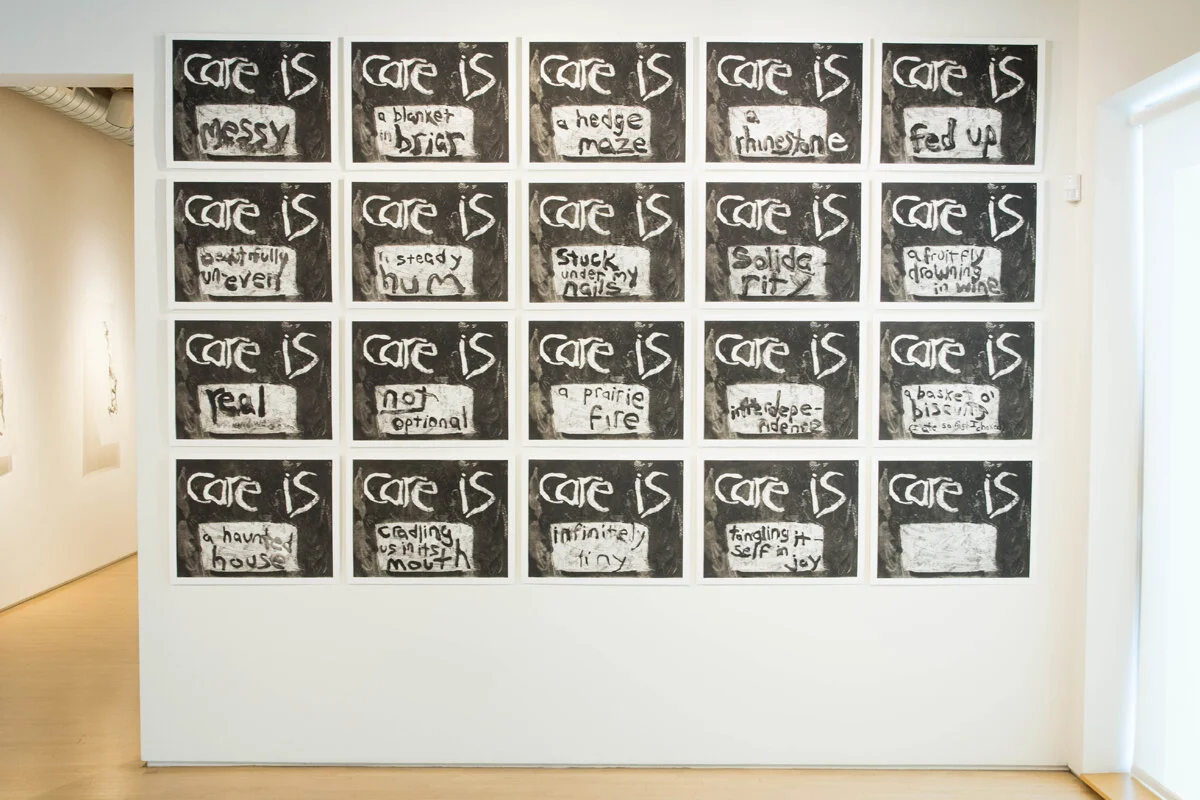 care is
messy
care is
a blanket
in briar
care is
a hedge
maze
care is
a
rhinestone
care is
fed up
care is
beautifully
uneven
care is
a steady
hum
care is
stuck
under my
nails
care is
Solida-
rity
care is
a fruit fly
drowning
in wine
care is
real
care is
not
optional
care is
a prairie
fire
care is
interdepe-
ndence
care is
a basket o'
biscuits
care is
a haunted
house
care is
cradling
us in its
mouth
care is
infinitely
tiny
care is
tangling it-
self in
joy
care is